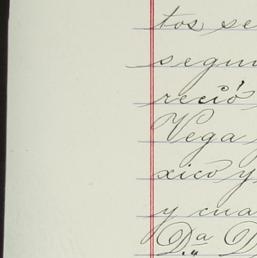 tos se
segun
reció
Vega
xico y
y cua
D.ª D